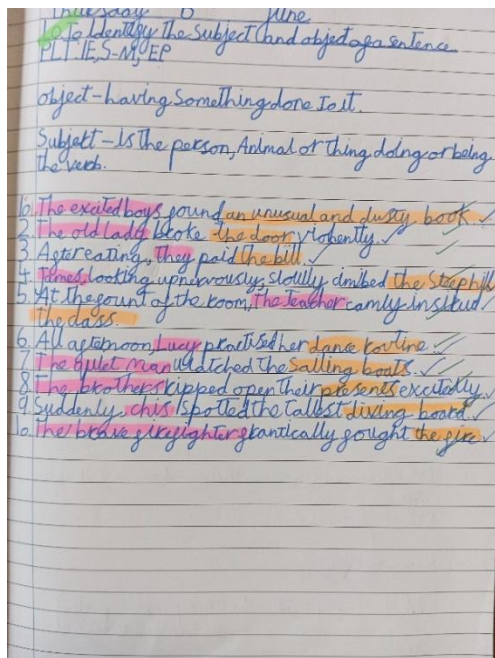 Thursday 6 June
LO To Identify the Subject and object of a sentence
PLT: IE, S-M, EP
object - having Something done to it.
Subject - is the person, Animal or thing doing or being
the verb.
1. The excited boys found an unusual and dusty book.
2. The old lady broke the door violently.
3 After eating, they paid the bill.
4. James, looking up nervously, slowly climbed the steep hill
5. At the fount of the room, the teacher camly insrud
the class.
6. All afternoon, Lucy practised her dance routine.
7 The quiet man watched the sailing boats.
8. The brothers ripped open their presents excitedly.
9 Suddenly, chris spotted the tallest diving board.
10. The brave firefighter frantically fought the fire.